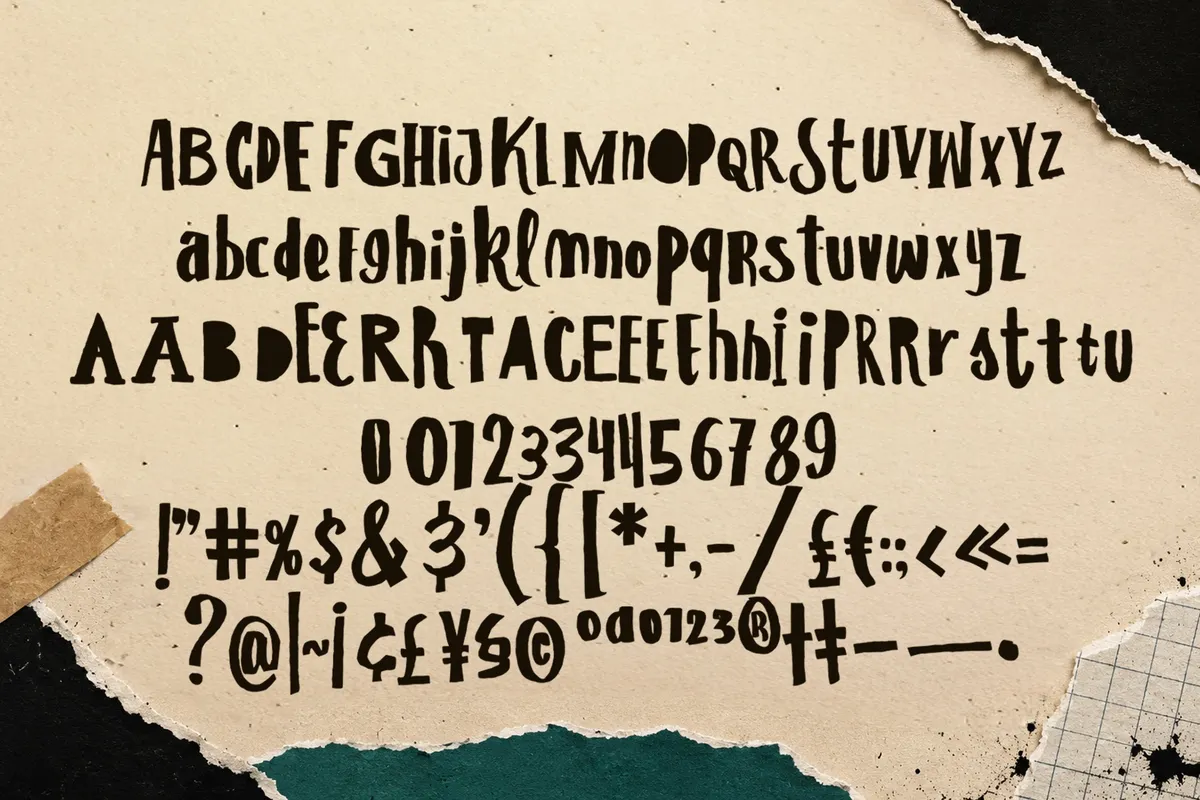 ABCDEFGHiJKLMnOPQRStUVWxYZ
abcdefghijklmnopqRstuvwxyz
AABDEERRTACEEEEhhiiPRRrstttu
0012334456789
!”#%$&$’({[*+,-/£€:;<«=
?@|~¡¢£¥§©ºª0123®†‡–—•